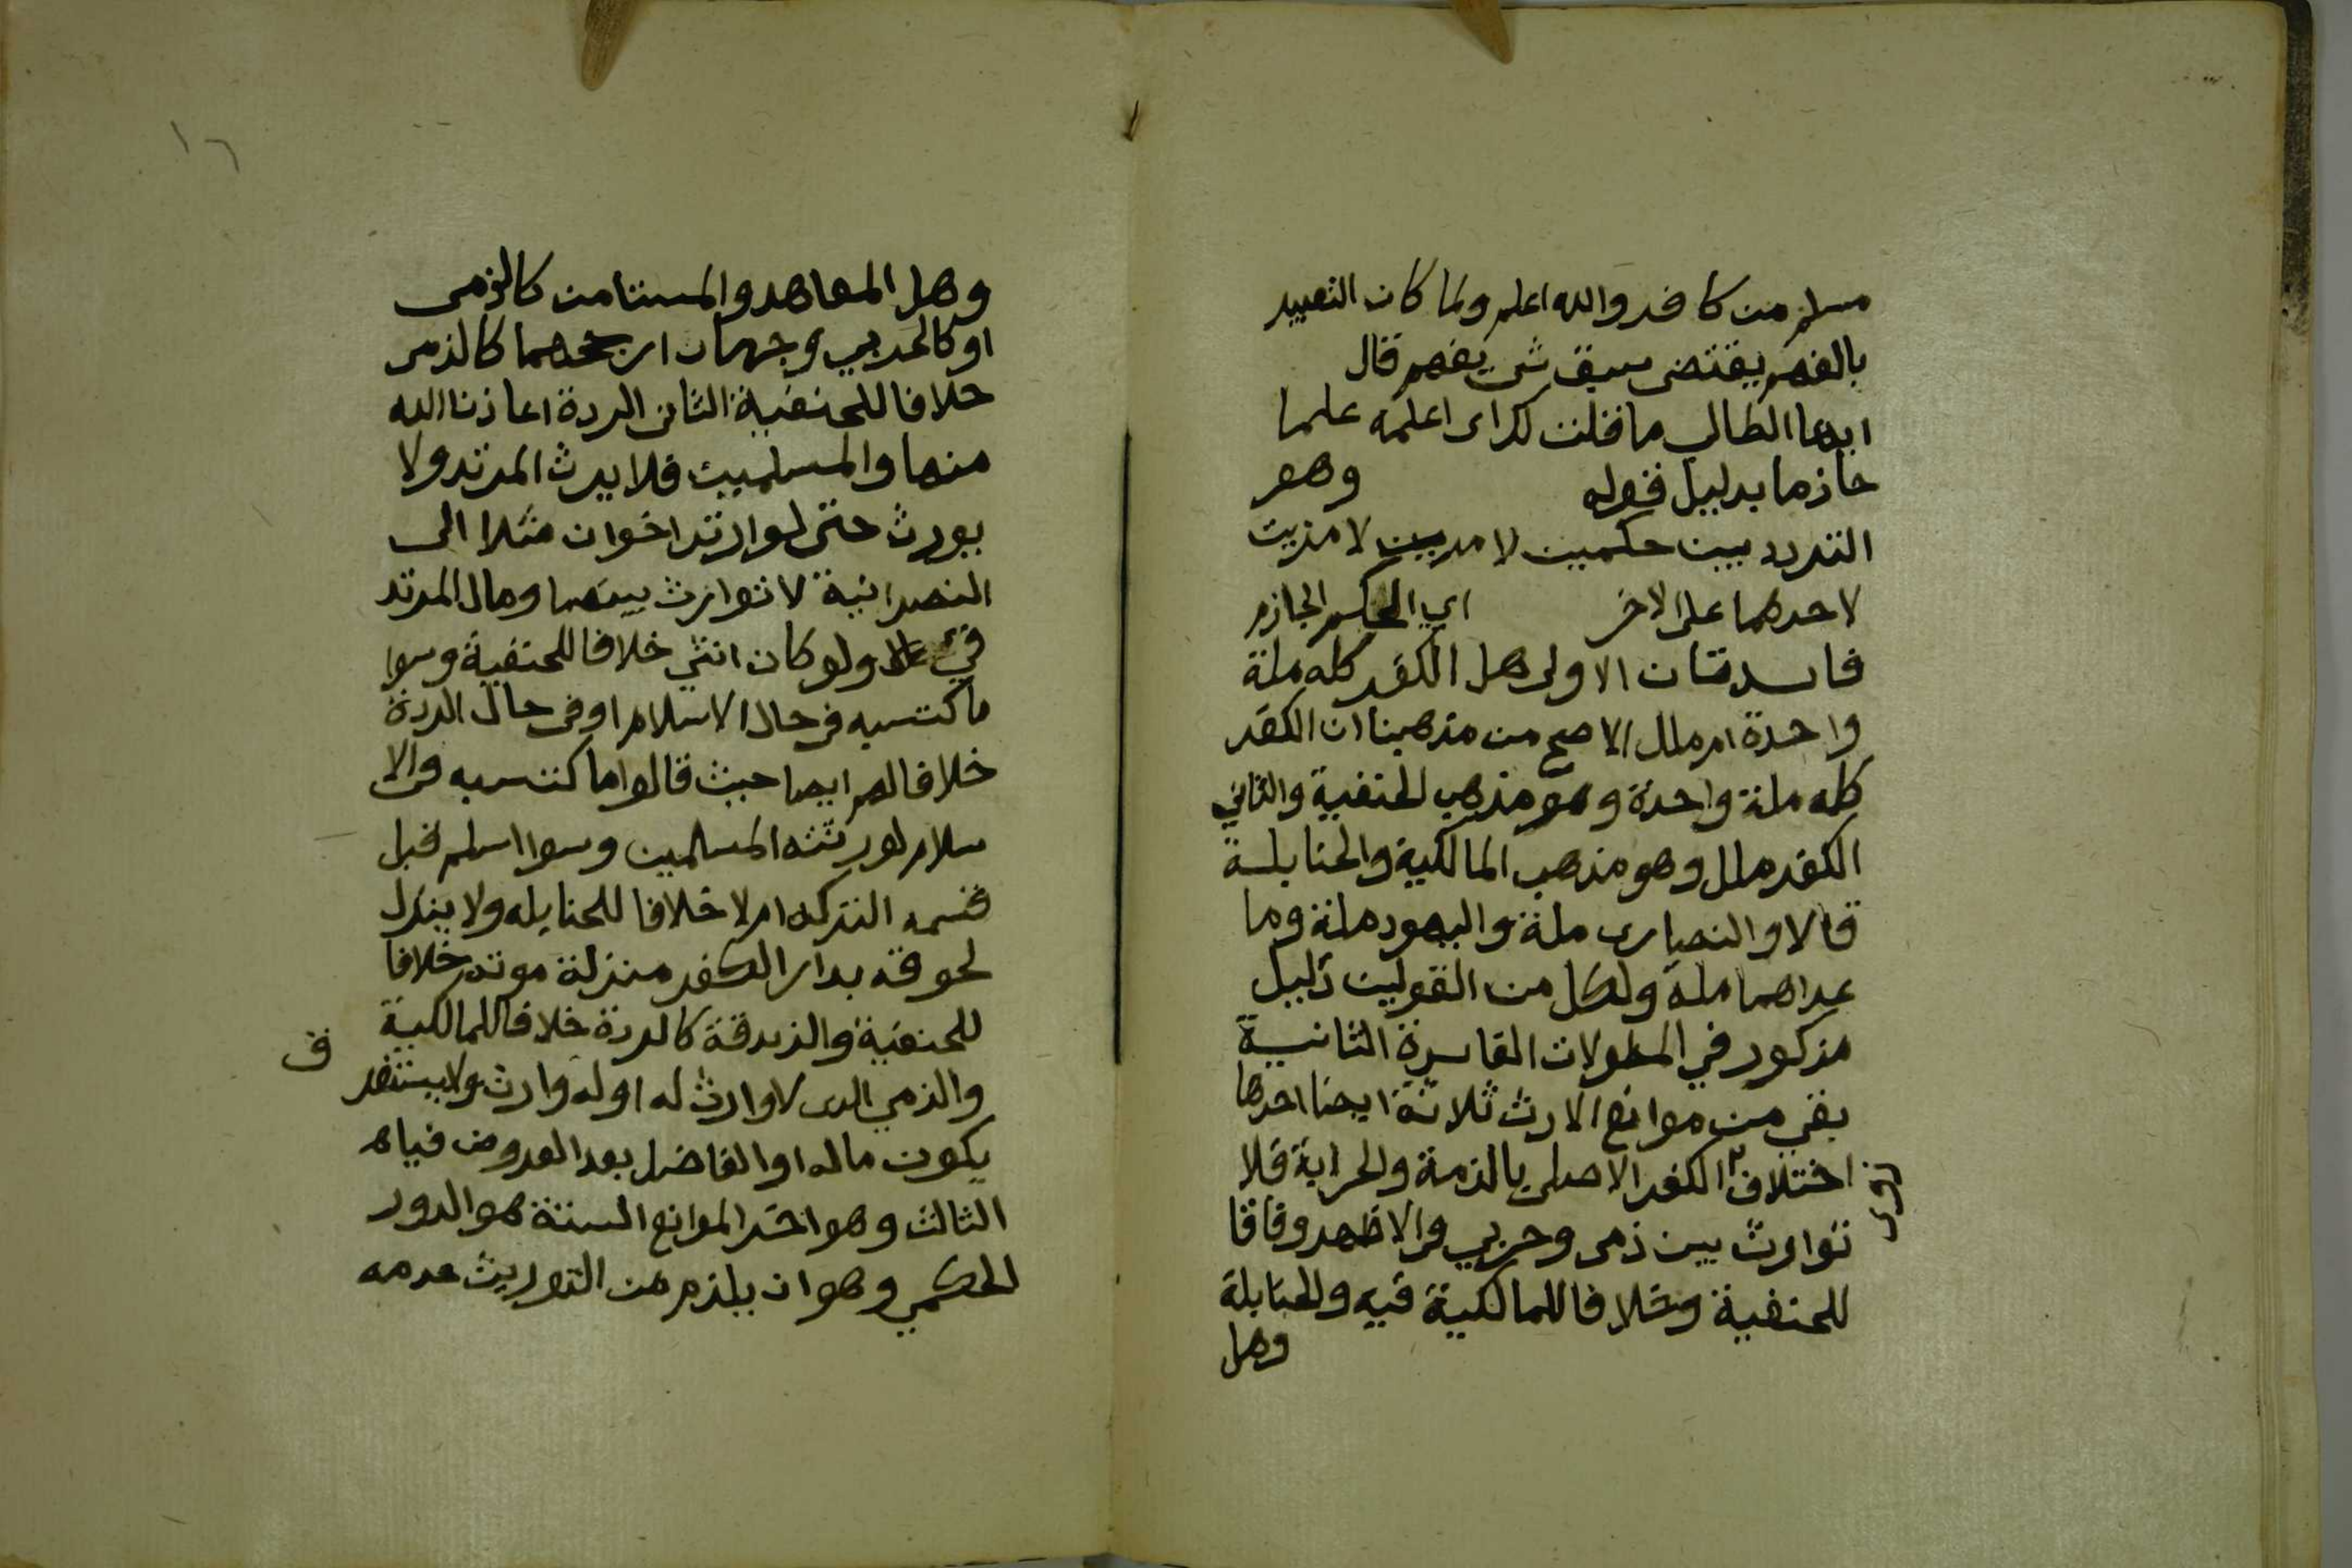 مسلم من كافر والله اعلم ولما كان التعبير
بالفهم يقتضى سبق شى يفهم قال
ايها الطالب ما قلت لك اى اعلمه علما
جازما بدليل قوله وهو
التردد بين حكمين لا مزيت
لاحدهما على الاخر اي الحكم الجازم
فايدتان الاولى هل الكفر كله ملة
واحدة ام ملل الاصح من مذهبنا ان الكفر
كله ملة واحدة وهو مذهب الحنفية والثاني
الكفر ملل وهو مذهب المالكية والحنابلة
قالا والنصارى ملة واليهود ملة وما
عداهما ملة ولكل من القولين دليل
مذكور في المطولات الفايدة الثانية
بقي من موانع الارث ثلاثة ايضا احدها
اختلاف الكفر الاصلى بالذمة والحرابة فلا
توارث بين ذمى وحربي فى الاظهر وفاقا
للحنفية وخلافا للمالكية فيه والحنابلة
وهل
١٦
وهل المعاهد والمستامن كالذمى
او كالحربي وجهان ارجحهما كالذمى
خلافا للحنفية الثانى الردة اعاذنا الله
منها والمسلمين فلا يرث المرتد ولا
يورث حتى لو ارتد اخوان مثلا الى
النصرانية لا توارث بينهما ومال المرتد
فيء ولو كان انثي خلافا للحنفية وسوا
ما كتسبه فى حال الاسلام او فى حال الردة
خلافا لهم ايضا حيث قالوا ما كتسبه فى الا
سلام لورثته المسلمين وسوا اسلم قبل
قسمه التركه ام لا خلافا للحنابله ولا ينزل
لحوقه بدار الكفر منزلة موته خلافا
للحنفية والزندقة كالردة خلافا للمالكية
والذمي الذى لا وارث له او له وارث ولا يستغر
ق
يكون ماله او الفاضل بعد الفروض فيا
الثالث وهو اخر الموانع الستة هو الدور
الحكمي وهو ان يلزم من التوريث عدمه